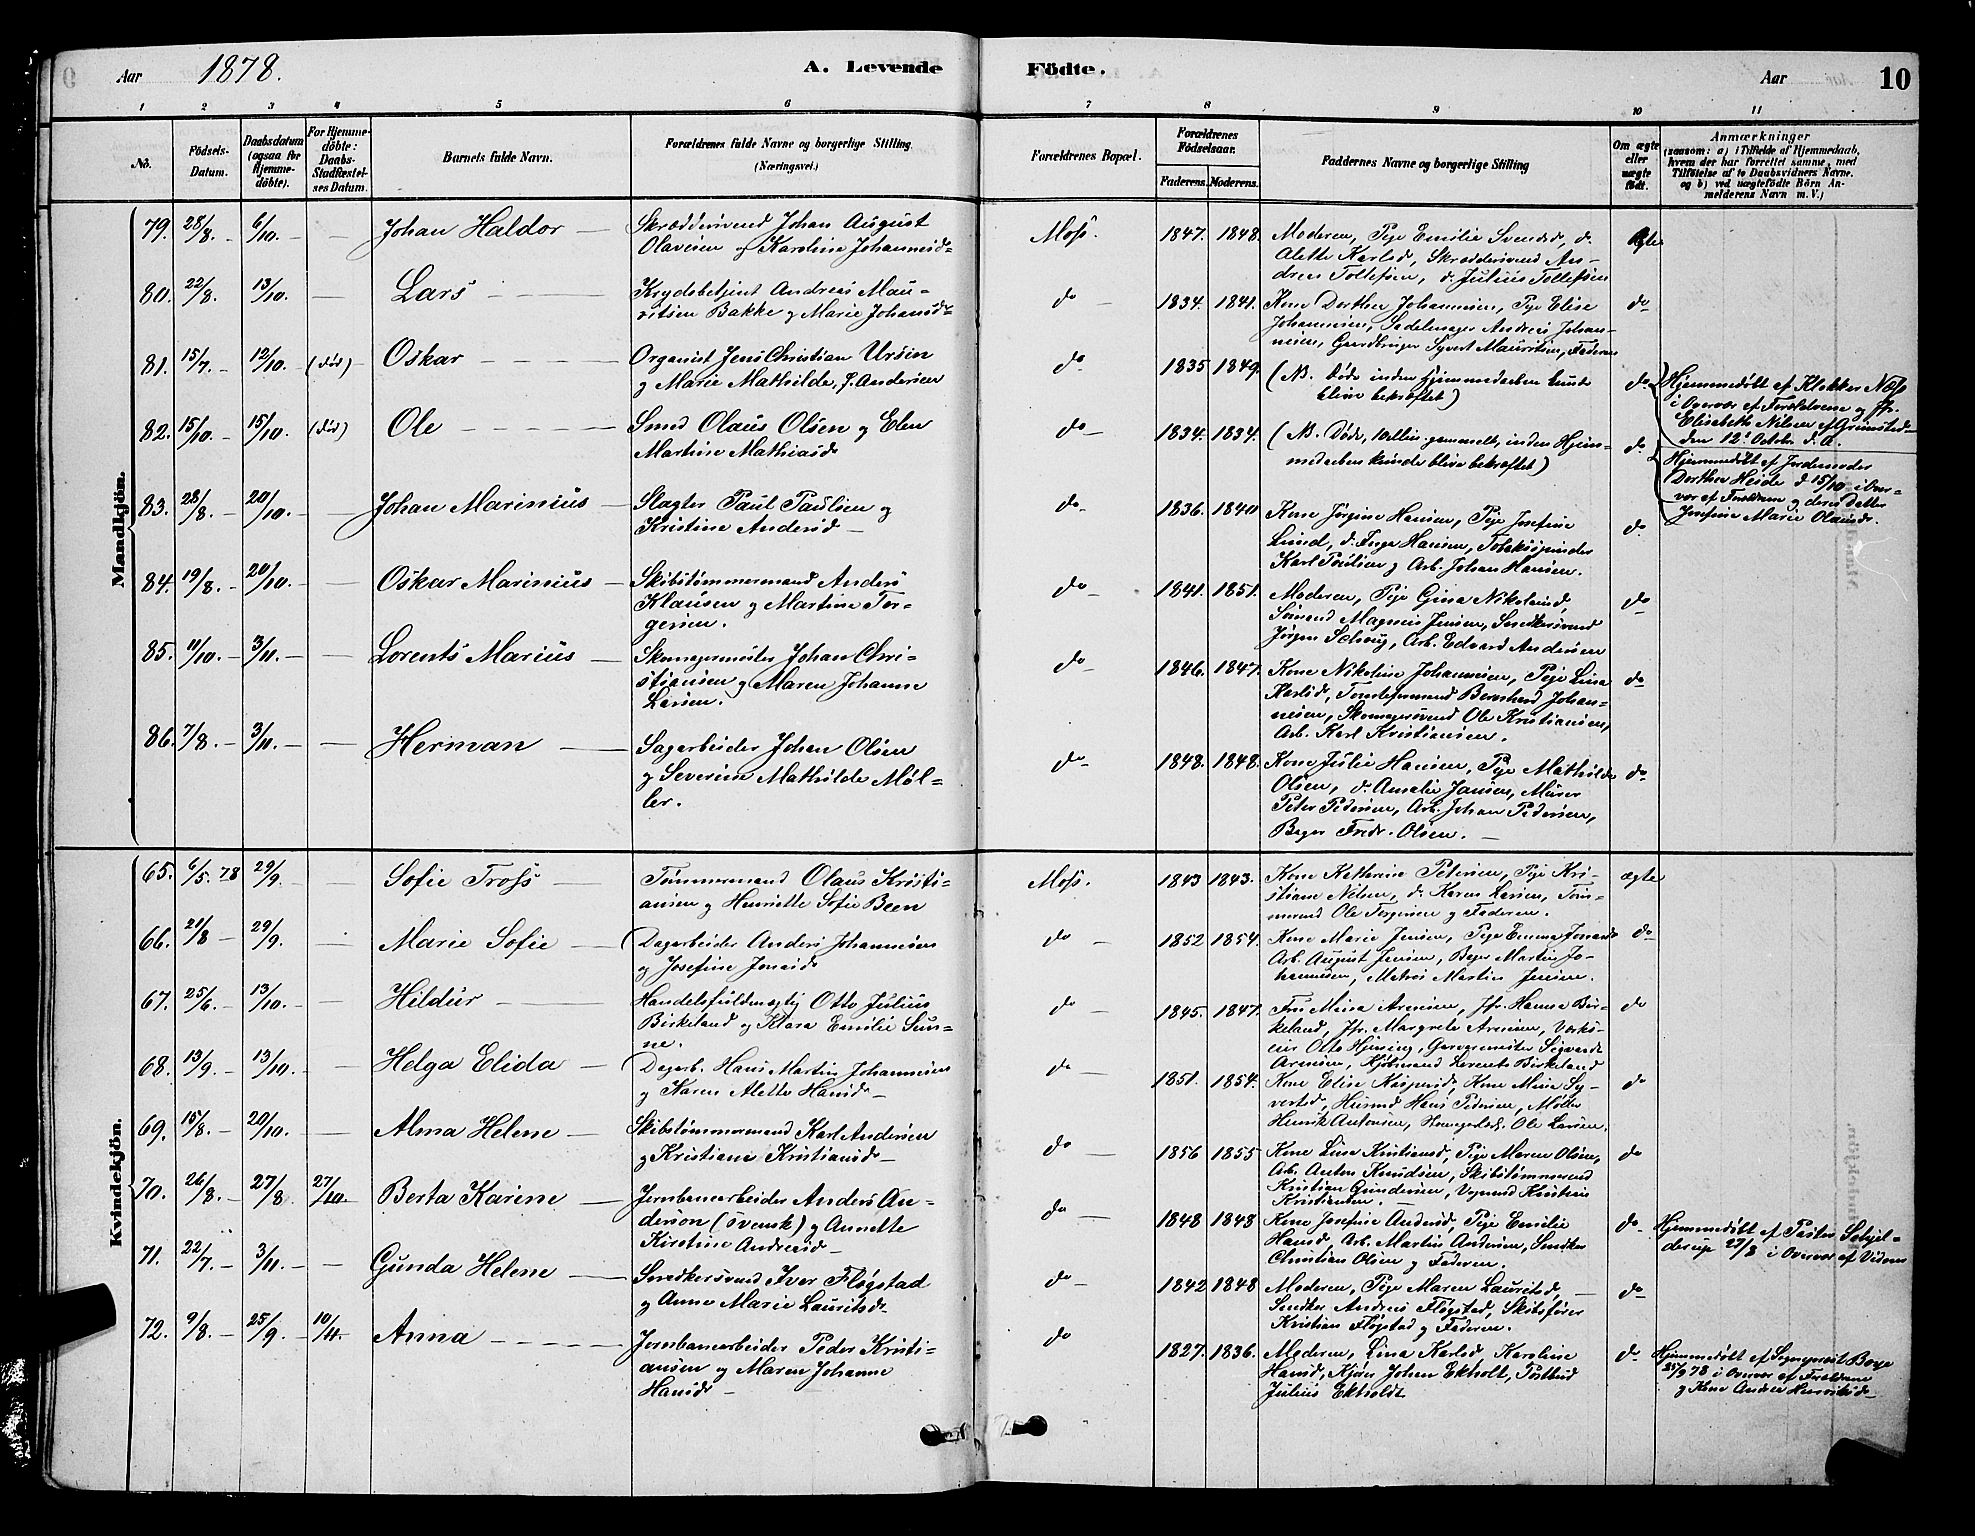 Aar 1878. A. Levende
Födte. Aar 10
1 2 3 4 5 6 7 8 9 10 11
No. Födsels-Datum. Daabsdatum (ogsaa for Hjemmedöbte). For Hjemmedöbte: Daabs-Stadfæstelses Datum. Barnets fulde Navn. Forældrenes fulde Navne og borgerlige Stilling. (Næringsvei.)
Forældrenes Bopæl. Forældrenes Födselsaar. Faderens. Moderens. Faddernes Navne og borgerlige Stilling Om ægte eller uægte födt. Anmærkninger (saasom: a) i Tilfælde af Hjemmedaab, hvem der har forrettet samme, med Tilföielse af to Daabsvidners Navne, og b) ved uægtefödte Börn Anmelderens Navn m.V.)
Mandkjön.
79. 28/8. 6/10. — Johan Haldor — Skræddersvend Johan August
Olavesen og Karoline Johannesd.
Moss. 1847. 1848. Moderen, Pige Emilie Svendsd, d.
Alette Karlsd, Skræddersvend An-
dreas Tollefsen, d. Julius Tollefsen
ægte
80. 22/8. 13/10. — Lars — Krydsbetjent Andreas Mau-
ritsen Bakke og Marie Johansd.
do 1834. 1841. Kone Dorthea Johannesen, Pige Elise
Johannesen, Sadelmager Andreas Johan-
nesen, Gaardbruger Syvert Mauritsen, Faderen
do
81. 15/7. 12/10. (död) Oskar — Organist Jens Christian Ursin
og Marie Mathilde, f. Andersen
do 1835 1849. (NB. döde inden Hjemmedaaben kunde
blive bekræftet)
do Hjemmedöbt af Klokker Næss
i Overvær af Forældrene og Jfr.
Elisabeth Nilsen af Grimstad
den 12. Octbr d. A.
82. 15/10. 15/10. (död) Ole — Smed Olaus Olsen og Elen
Martine Mathiasd.
do 1834. 1834. (NB. Döde, gammelt, inden Hjem-
medaaben kunde blive bekræftet)
do Hjemmedöbt af Jordemoder
Dorthea Heide d. 15/10 i Over-
vær af Forældrene og deres Datter
Josefine Marie Olausd.
83. 28/8. 20/10. — Johan Marinius — Slagter Paul Paulsen og
Kristine Andersd —
do 1836. 1840 Kone Jørgine Hansen, Pige Josefine
Lund, d. Inga Hansen, Tobakspinder
Karl Poulsen og Arb. Johan Hansen.
do
84. 19/8. 20/10. — Oskar Marinius — Skibstömmermand Anders
Klausen og Martine Tor-
gersen.
do 1841. 1851. Moderen, Pige Gina Nikolaisd,
Sömand Magnus Jensen, Snedkersvend
Jörgen Solvig, Arb. Edvard Andersen
do
85. 11/10. 3/11. — Lorents Marius — Skomagermester Johan Chri-
stiansen og Maren Johanne
Larsen.
do 1846. 1847. Kone Nikoline Johannesen, Pige Lina
Karlsd, Tomtefmmand Bernhard Johan-
nesen, Skomagersvend Ole Kristiansen,
Arb. Karl Kristiansen.
do
86. 7/8. 3/11. — Herman — Sagarbeider Johan Olsen
og Severine Mathilde Möl-
ler.
do 1848. 1848. Kone Julie Hansen, Pige Mathilde
Olsen, d. Amalie Jansen, Murer
Peter Pedersen, Arb. Johan Pedersen,
Bager Fredr. Olsen. —
do
Kvindekjön.
65. 6/5. 78 29/9. — Sofie Tross — Tömmermand Olaus Kristi-
ansen og Henriette Sofie Been
Moss. 1843 1843. Kone Katherine Petersen, Pige Kri-
stiane Nilsen, d. Karen Larsen, Töm-
mermd Ole Torgersen og Faderen.
ægte
66. 21/8 29/9. — Marie Sofie — Dagarbeider Anders Johannesen
og Josefine Jonasd.
do 1852 1854. Kone Marie Jensen, Pige Emma Jonasd
Arb. August Jensen, Bager Martin Jo-
hannesen, Matros Martin Jensen.
do
67. 25/6. 13/10. — Hildur — Handelsfuldmægtig Otto Julius
Birkeland og Klara Emilie Sun-
ne.
do 1845. 1847. Fru Mina Arnesen, Jfr. Hanna Bir-
keland, Jfr. Margrete Arnesen, Værks-
eier Otto Hjersing, Garvermester Sigvardt
Arnesen, Kjöbmand Lorents Birkeland
do
68. 13/9. 13/10. — Helga Elida — Dagarb. Hans Martin Johannesen
og Karen Alette Hansd. —
do 1851. 1854. Kone Elise Kaspersd, Kone Mina Sy-
vertsd, Husmd Hans Pedersen, Möller
Henrik Antonsen, Ole Larsen.
do
69. 15/8. 20/10. — Alma Helene — Skibstömmermand Karl Andersen
og Kristiane Kristiansd. —
do 1856 1855 Kone Lina Kristiansd, Pige Maren Olsen,
Arb. Anton Knudsen, Skibstömmermd
Kristian Gundersen, Vognmd Kristian
Kristiansen.
do
70. 26/8. 27/8 27/10. Berta Karine — Jernbanearbeider Anders An-
derson (svensk) og Annette
Kirstine Andreasd. —
do 1848 1848 Kone Josefine Andersd, Pige Emilie
Hansd, Arb. Martin Andersen, Snedker
Christian Olsen og Faderen.
do Hjemmedöbt af Pastor Schjel-
derup 27/8 i Overvær af Vidner
71. 22/7. 3/11. — Gunda Helene — Snedkersvend Iver Flögstad
og Anne Marie Lauritsd.
do 1842 1848 Moderen, Pige Maren Lauritsd, —
Snedker Andreas Flögstad, Skibsförer
Kristian Flögstad og Faderen.
do
72. 9/8. 25/9. 10/11. Anna — Jernbanearbeider Peder Kristi-
ansen og Maren Johanne
Hansd. —
do 1827. 1836. Moderen, Lina Karlsd, Karoline
Hansd, Kjörer Johan Ekholt, Postbud
Julius Ekholdt
do Hjemmedöbt af Sogneprest Boye
25/9 78 i Overvær af Forældrene
og Kone Andrea